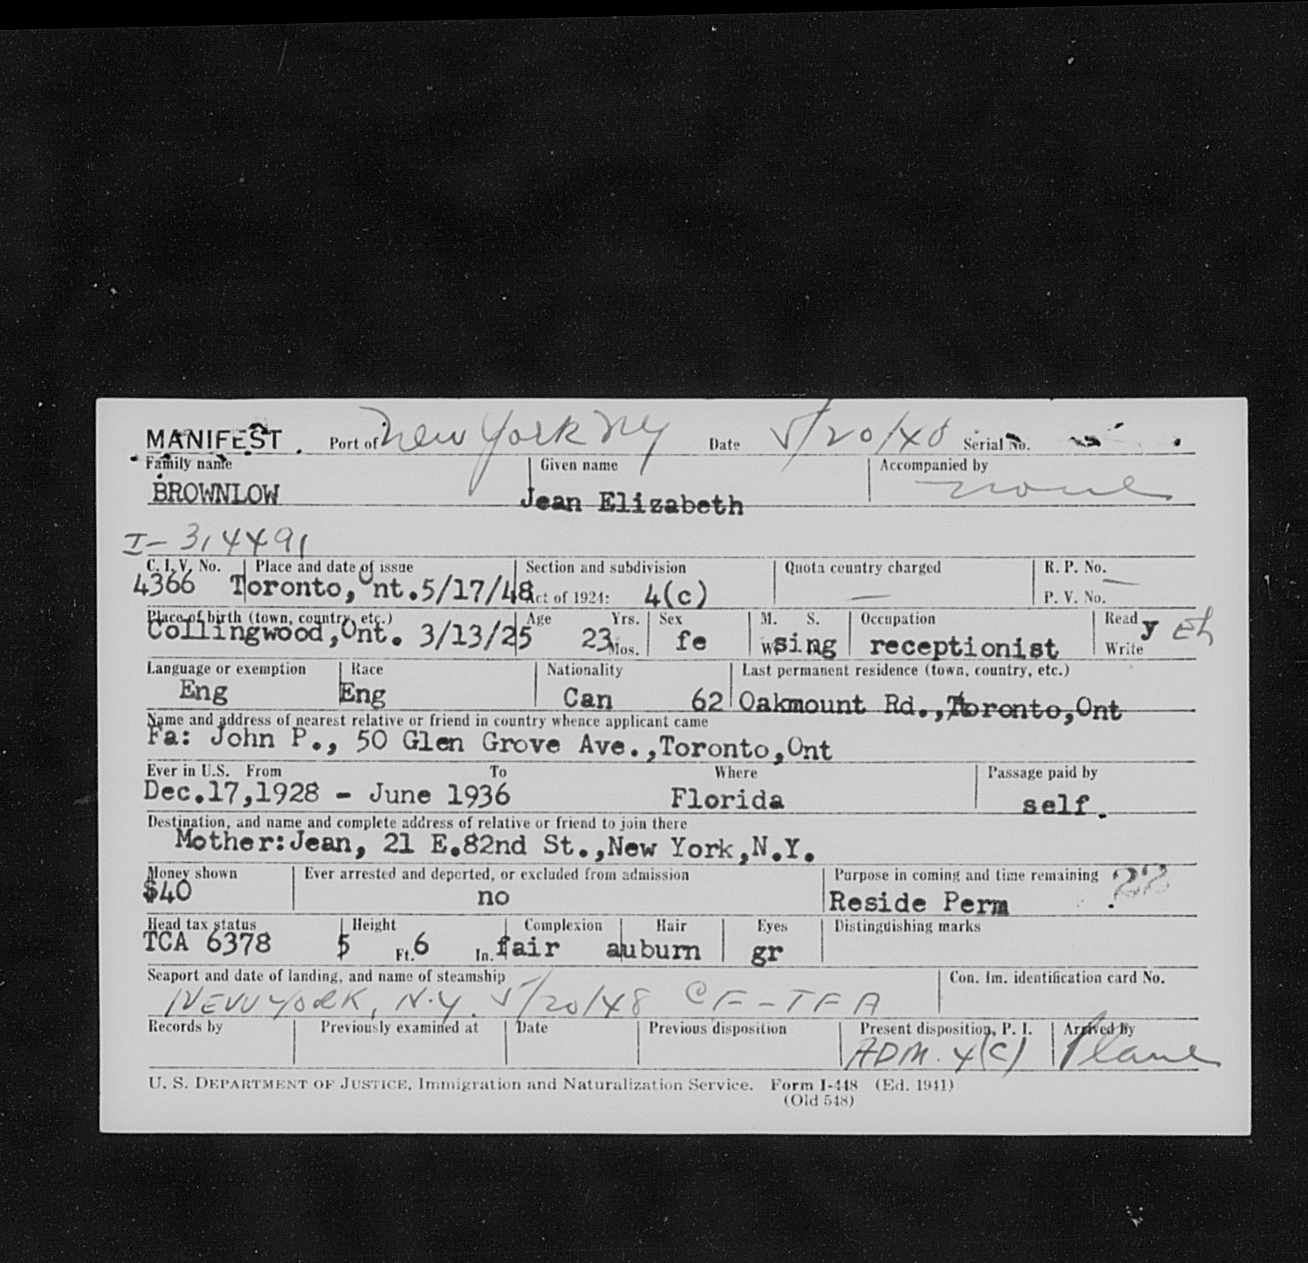 MANIFEST Port of New York NY Date 5/20/48 Serial No.
Family name Given name Accompanied by
BROWNLOW Jean Elizabeth none
I-314491
C. I. V. No. Place and date of issue Section and subdivision Quota country charged R. P. No. —
4366 Toronto, Ont. 5/17/48 Act of 1924: 4(c) — P. V. No.
Place of birth (town, country, etc.) Age Yrs. Sex M. S. Occupation Read
Collingwood, Ont. 3/13/25 23 Mos. fe W sing receptionist Write y
Language or exemption Race Nationality Last permanent residence (town, country, etc.)
Eng Eng Can 62 Oakmount Rd., Toronto, Ont
Name and address of nearest relative or friend in country whence applicant came
Fa: John P., 50 Glen Grove Ave., Toronto, Ont
Ever in U.S. From To Where Passage paid by
Dec. 17, 1928 - June 1936 Florida self.
Destination, and name and complete address of relative or friend to join there
Mother: Jean, 21 E. 82nd St., New York, N.Y.
Money shown Ever arrested and deported, or excluded from admission Purpose in coming and time remaining
$40 no Reside Perm
Head tax status Height Complexion Hair Eyes Distinguishing marks
TCA 6378 5 Ft. 6 In. fair auburn gr
Seaport and date of landing, and name of steamship Con. Im. identification card No.
NEW YORK, N.Y. 5/20/48 CF-TFA
Records by Previously examined at Date Previous disposition Present disposition, P. I. Arrived by
ADM. 4(C) Plane
U. S. DEPARTMENT OF JUSTICE, Immigration and Naturalization Service. Form I-448 (Ed. 1941)
(Old 548)